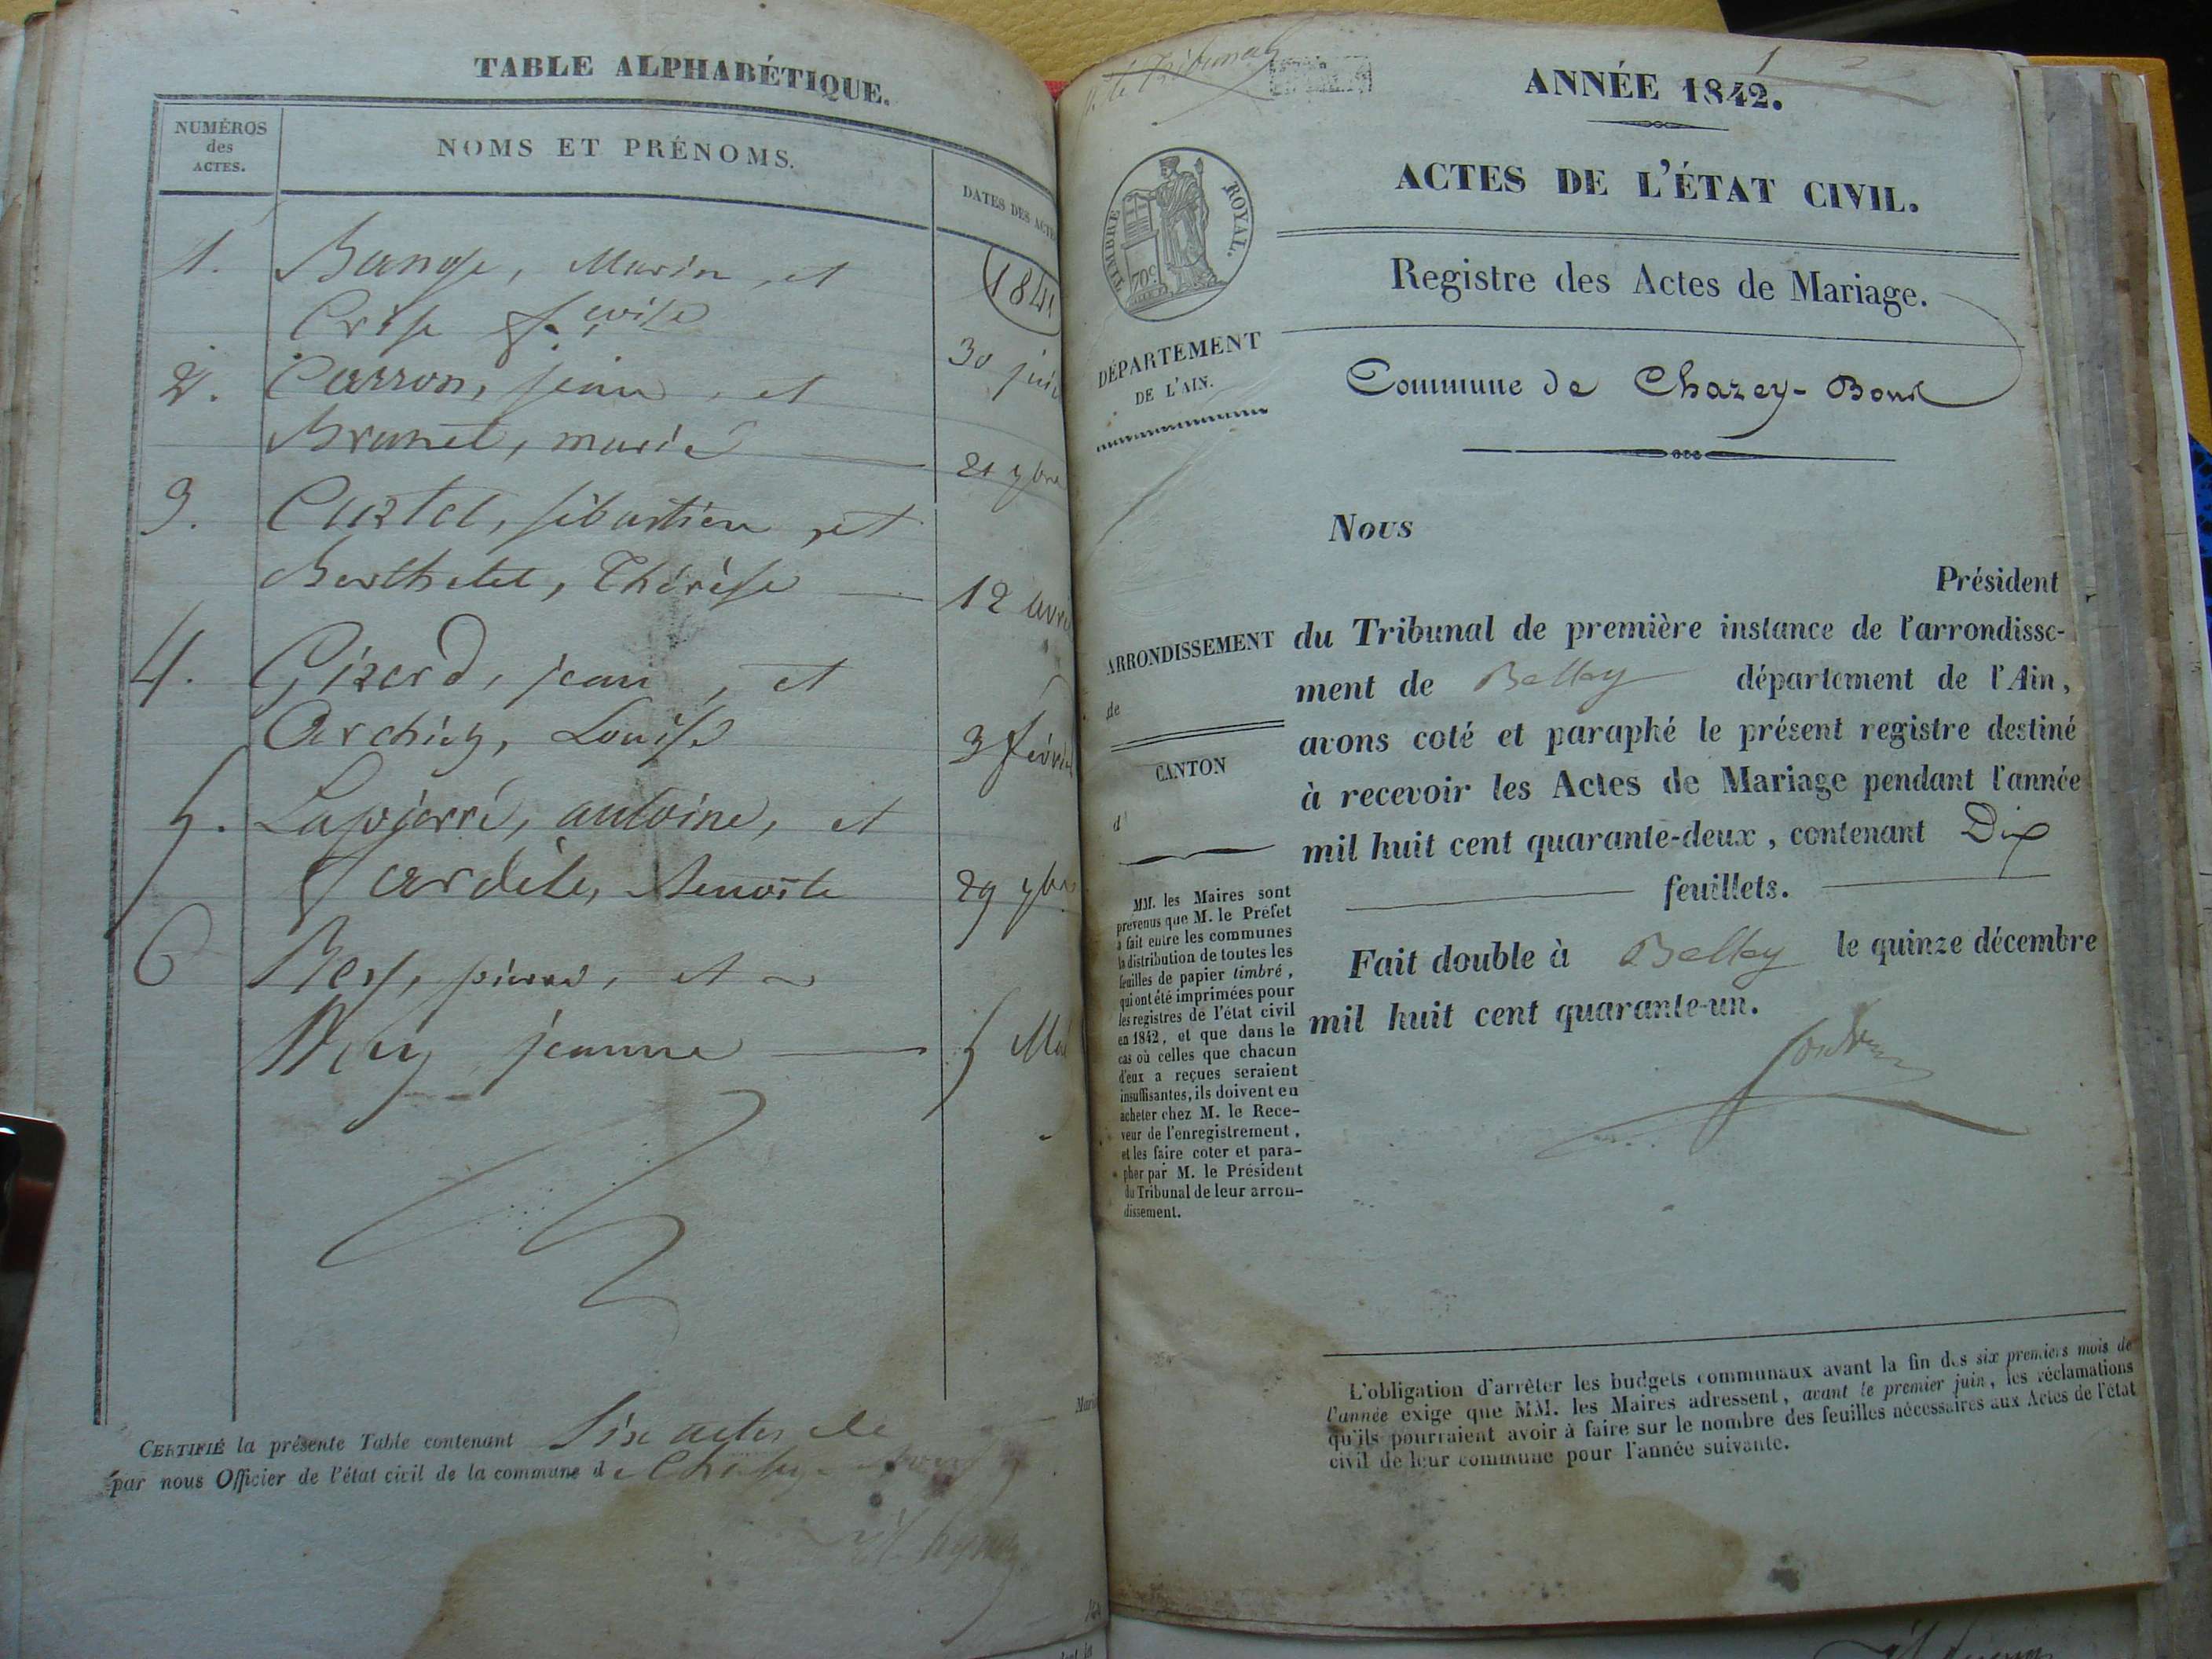 TABLE ALPHABÉTIQUE.
NUMÉROS
des
ACTES.
NOMS ET PRÉNOMS.
DATES DES ACTE
1. Bange, Marin, et
1841
Crise f.çoise
30 juin
2. Carron, jean, et
Brunet, marie
21 9bre
3. Curtel, sébastien, et
Berthelet, Thérèse
12 avri
4. Girerd, jean, et
Louise
3 févri
5. Lapierre, antoine, et
Benoite
29 9br
6 Rey, pierre, et
jeanne
5 Mai
CERTIFIÉ la présente Table contenant Six actes de
Maria
par nous Officier de l'état civil de la commune de
p. le Tribunal
1
ANNÉE 1842.
TIMBRE ROYAL.
70c
ACTES DE L'ÉTAT CIVIL.
Registre des Actes de Mariage.
DÉPARTEMENT
DE L'AIN.
Commune de Chazey-Bons
Nous
Président
ARRONDISSEMENT
de
CANTON
d'
du Tribunal de première instance de l'arrondisse-
ment de Belley département de l'Ain,
avons coté et paraphé le présent registre destiné
à recevoir les Actes de Mariage pendant l'année
mil huit cent quarante-deux, contenant Dix
feuillets.
Fait double à Belley le quinze décembre
mil huit cent quarante-un.
MM. les Maires sont
prévenus que M. le Préfet
a fait entre les communes
la distribution de toutes les
feuilles de papier timbré,
qui ont été imprimées pour
les registres de l'état civil
en 1842, et que dans le
cas où celles que chacun
d'eux a reçues seraient
insuffisantes, ils doivent en
acheter chez M. le Rece-
veur de l'enregistrement,
et les faire coter et para-
pher par M. le Président
du Tribunal de leur arron-
dissement.
L'obligation d'arrêter les budgets communaux avant la fin des six premiers mois de
l'année exige que MM. les Maires adressent, avant le premier juin, les réclamations
qu'ils pourraient avoir à faire sur le nombre des feuilles nécessaires aux Actes de l'état
civil de leur commune pour l'année suivante.